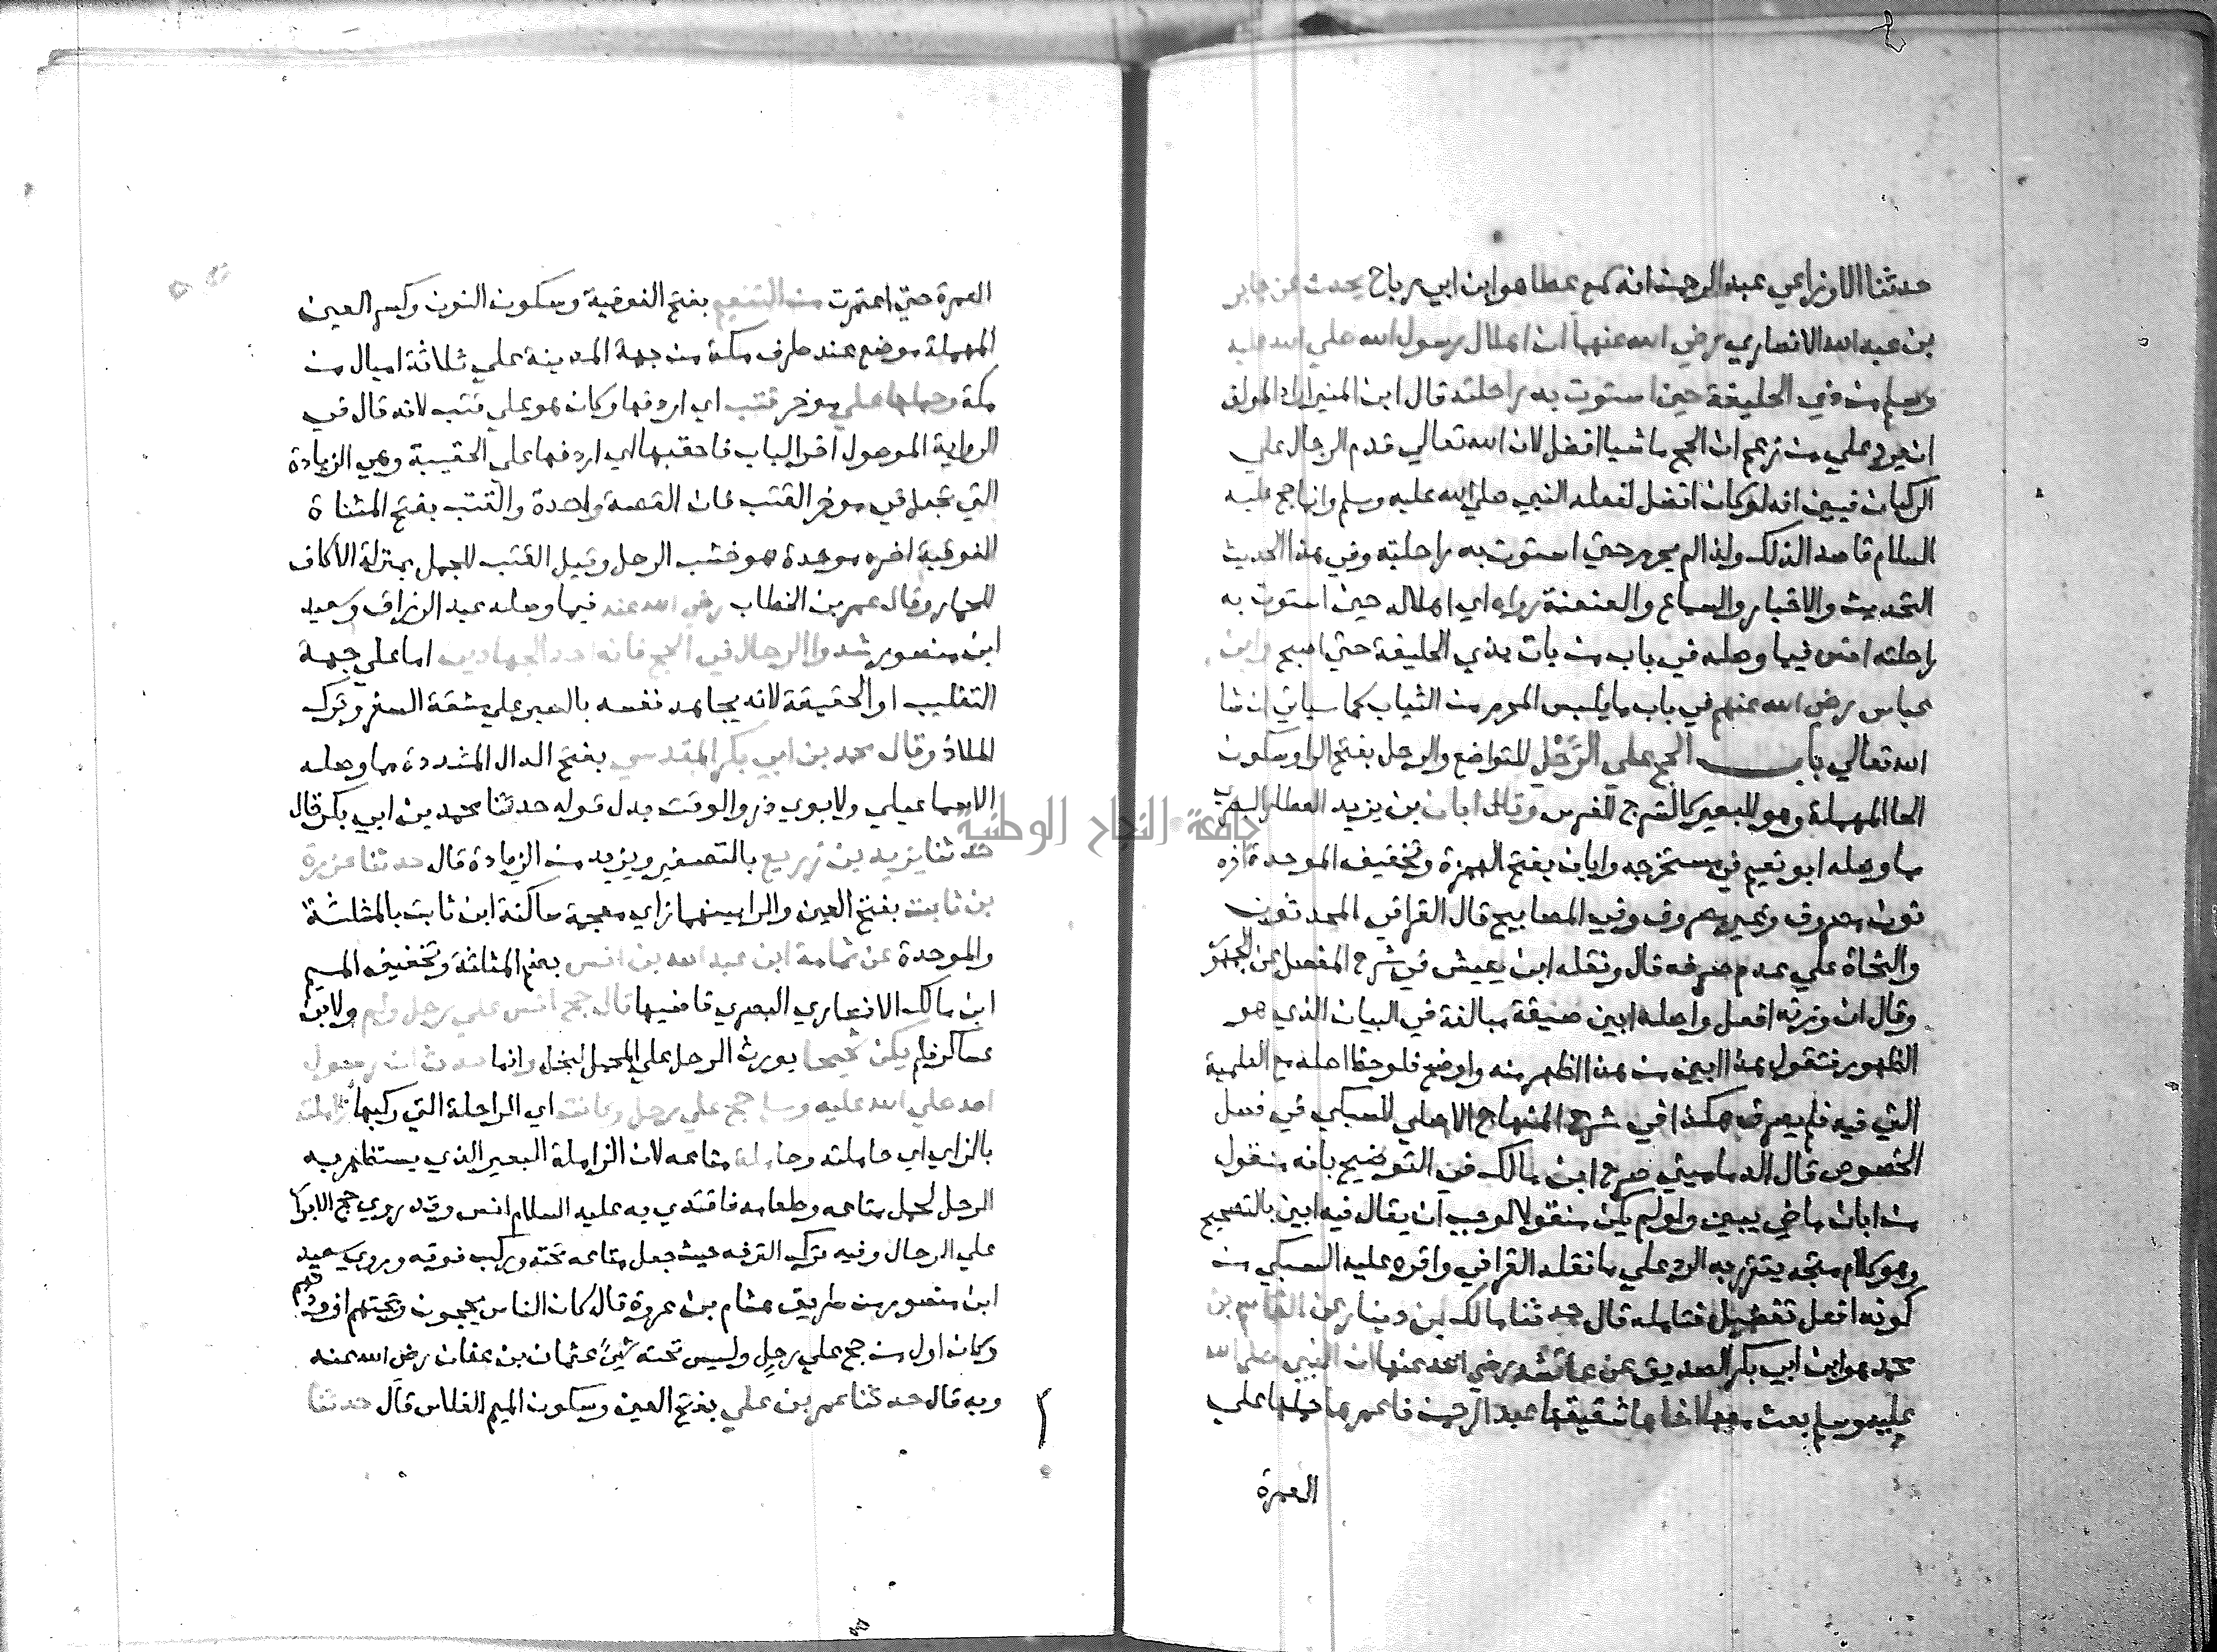 حدثنا الاوزاعي عبد الرحمن انه سمع عطا هو ابن ابي رباح يحدث عن جابر
بن عبد الله الانصاري رضي الله عنهما ان اهلال رسول الله صلي الله عليه
وسلم من ذي الحليفة حين استوت به راحلته قال ابن المنير اراد المولف
ان يرد علي من زعم ان الحج ماشيا افضل لان الله تعالي قدم الرجال علي
الركبان فبين انه لو كان افضل لفعله النبي صلي الله عليه وسلم وانما حج عليه
السلام قاصدا لذلك ولذا لم يحرم حتي استوت به راحلته وفي هذا الحديث
التحديث والاخبار والسماع والعنعنة رواه اي اهلاله حين استوت به
راحلته انس فيما وصله في باب من بات بذي الحليفة حتي اصبح وابن
عباس رضي الله عنهم في باب ما يلبس المحرم من الثياب كما سياتي ان شا
الله تعالي باب الحج علي الرَّحْلِ للتواضع والرحل بفتح الرا وسكون
الحا المهملة وهو للبعير كالسرج للفرس وقال ابان بن يزيد العطار البصري
مما وصله ابو نعيم في مستخرجه وابان بفتح الهمزة وتخفيف الموحدة اخره
نون مصروف وغير مصروف وفي المصابيح قال القرافي المحدثون
والنحاة علي عدم صرفه قال ونقله ابن يعيش في شرح المفصل عن الجمهور
وقال ان وزنه افعل واصله ابين صيغة مبالغة في البيان الذي هو
الظهور فتقول هذا ابين من هذا اظهر منه واوضح فلوحظ اصله مع العلمية
التي فيه فلم يصرف هكذا في شرح المنهاج الاصلي للسبكي في فصل
الخصوص قال الدماميني صرح ابن مالك في التوضيح بانه منقول
من ابان ماضي يبين ولو لم يكن منقولا لوجب ان يقال فيه ابين بالتصحيح
وهو كلام متجه يتقرر به الرد علي ما نقله القرافي واقره عليه السبكي من
كونه افعل تفضيل فتامله قال حدثنا مالك بن دينار عن القاسم بن
محمد هو ابن ابي بكر الصديق عن عائشة رضي الله عنها ان النبي صلي الله
عليه وسلم بعث معها اخاها شقيقها عبد الرحمن فاعمرها حملها علي
العمرة
العمرة حتي اعتمرت من التنعيم بفتح الفوقية وسكون النون وكسر العين
المهملة موضع عند طرف مكة من جهة المدينة علي ثلاثة اميال من
مكة وحملها علي موخر قتب اي اردفها وكان هو علي قتب لانه قال في
الرواية الموصول اخر الباب فاحقبها اي اردفها علي الحقيبة وهي الزيادة
التي تجعل في موخر القتب فان القصة واحدة والقتب بفتح المثناة
الفوقية اخره موحدة هو خشب الرحل وقيل القتب للجمل بمنزلة الاكاف
للحمار وقال عمر بن الخطاب رضي الله عنه فيما وصله عبد الرزاق وسعيد
ابن منصور شدوا الرحال في الحج فانه احد الجهادين اما علي جهة
التغليب او الحقيقة لانه يجاهد نفسه بالصبر علي مشقة السفر وترك
الملاذ وقال محمد بن ابي بكر المقدسي بفتح الدال المشددة مما وصله
الاسماعيلي ولابوي ذر والوقت بدل قوله حدثنا محمد بن ابي بكر قال
حدثنا يزيد بن زريع بالتصغير ويزيد من الزيادة قال حدثنا عزرة
بن ثابت بفتح العين والرا بينهما زاي معجمة ساكنة ابن ثابت بالمثلثة
والموحدة عن ثمامة ابن عبد الله بن انس بضم المثلثة وتخفيف الميم
ابن مالك الانصاري البصري قاضيها قال حج انس علي رحل ولم ولابن
عساكر فلم يكن شحيحا يورث الرحل علي المحمل لبخل وانما حدث ان رسول
الله صلي الله عليه وسلم حج علي رحل وكانت اي الراحلة التي ركبها زاملته
بالزاي اي حاملته وحاملة متاعه لان الزاملة البعير الذي يستظهر به
الرجل لحمل متاعه وطعامه فاقتدي به عليه السلام انس وقد روي حج الابرار
علي الرحال وفيه ترك الترفه حيث جعل متاعه تحته وركب فوقه وروي سعيد
ابن منصور من طريق هشام بن عروة قال كان الناس يحجون وتحتهم ازودتهم
وكان اول من حج علي رحل وليس تحته شيء عثمان بن عفان رضي الله عنه
وبه قال حدثنا عمر بن علي بفتح العين وسكون الميم الفلاس قال حدثنا
جامعة النجاح الوطنية